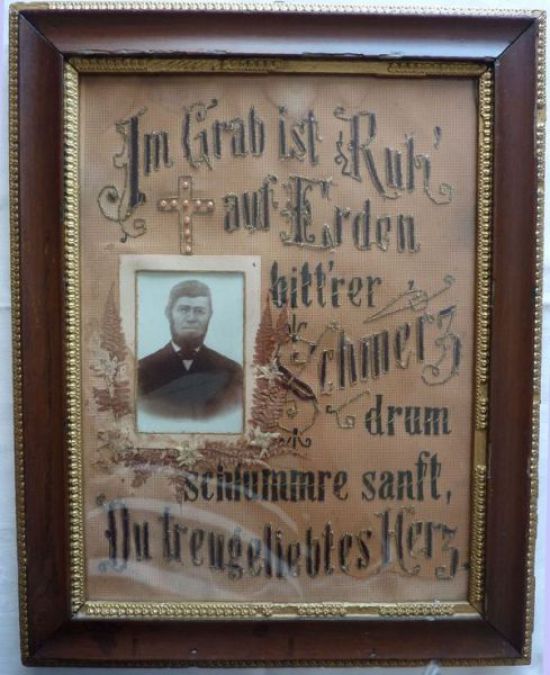 Im Grab ist Ruh'
auf Erden
bitt'rer
Schmerz
drum
schlummre sanft,
Du treugeliebtes Herz.